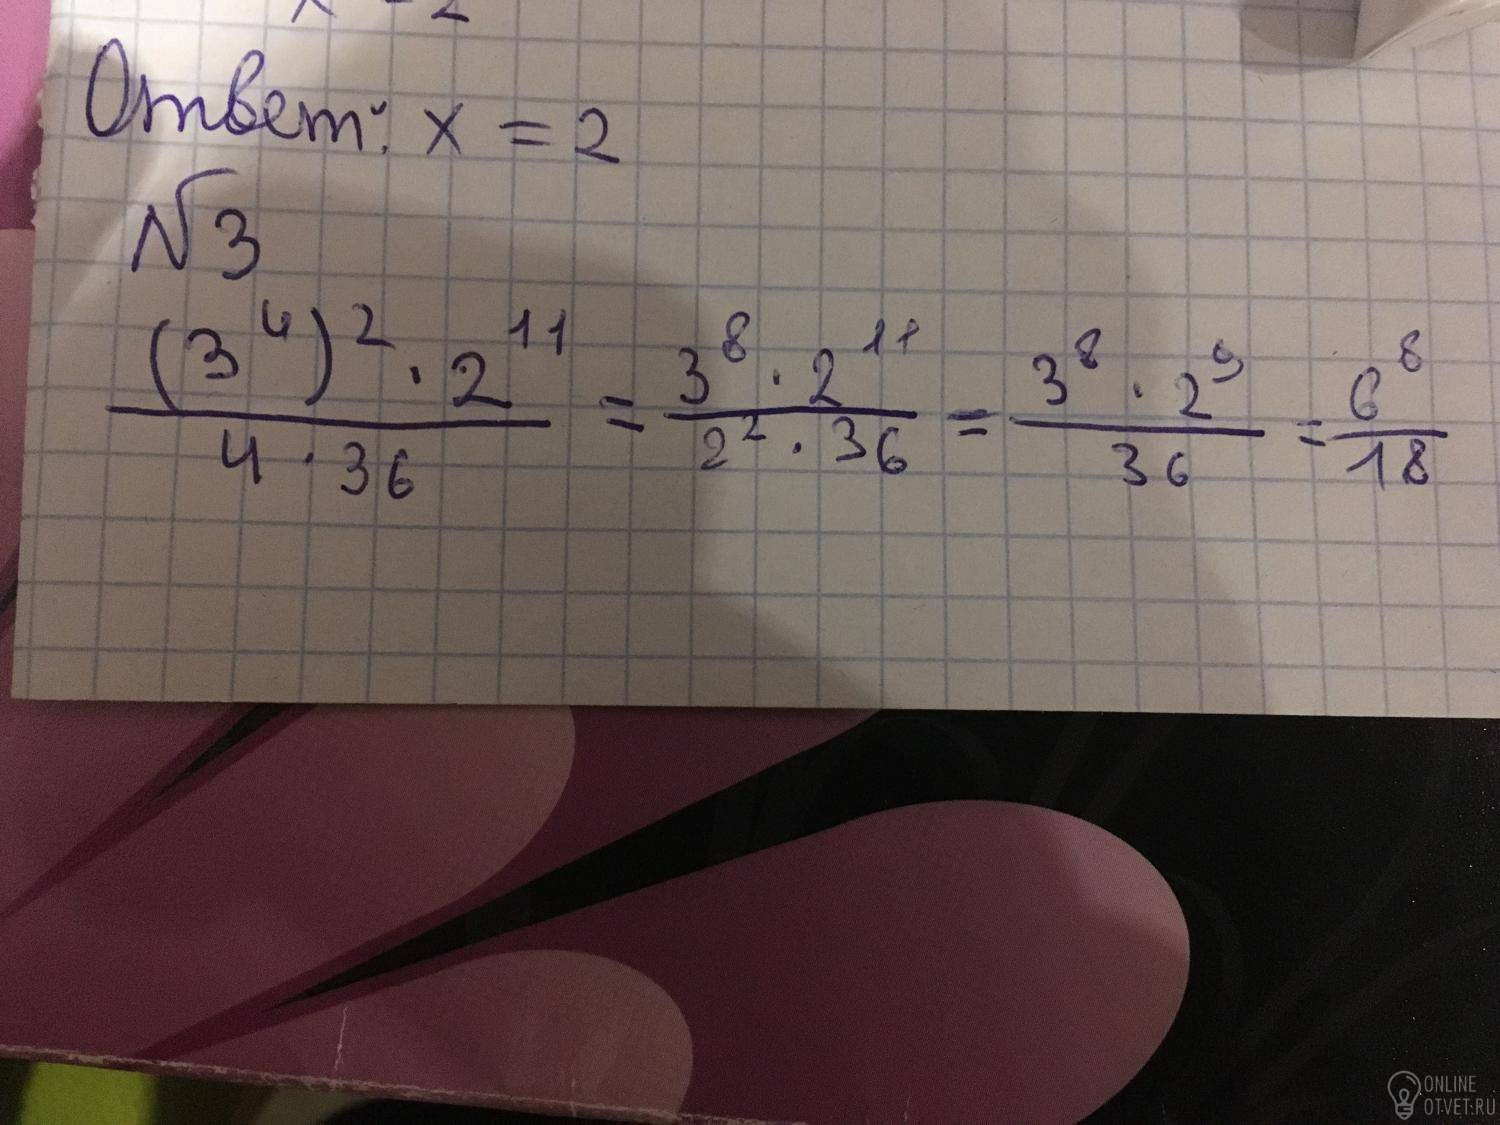 x = 2
Ответ: x = 2
№3
(3⁴)² · 2¹¹ / 4 · 36 = 3⁸ · 2¹¹ / 2² · 36 = 3⁸ · 2⁹ / 36 = 6⁸ / 18
ONLINE
OTVET.RU